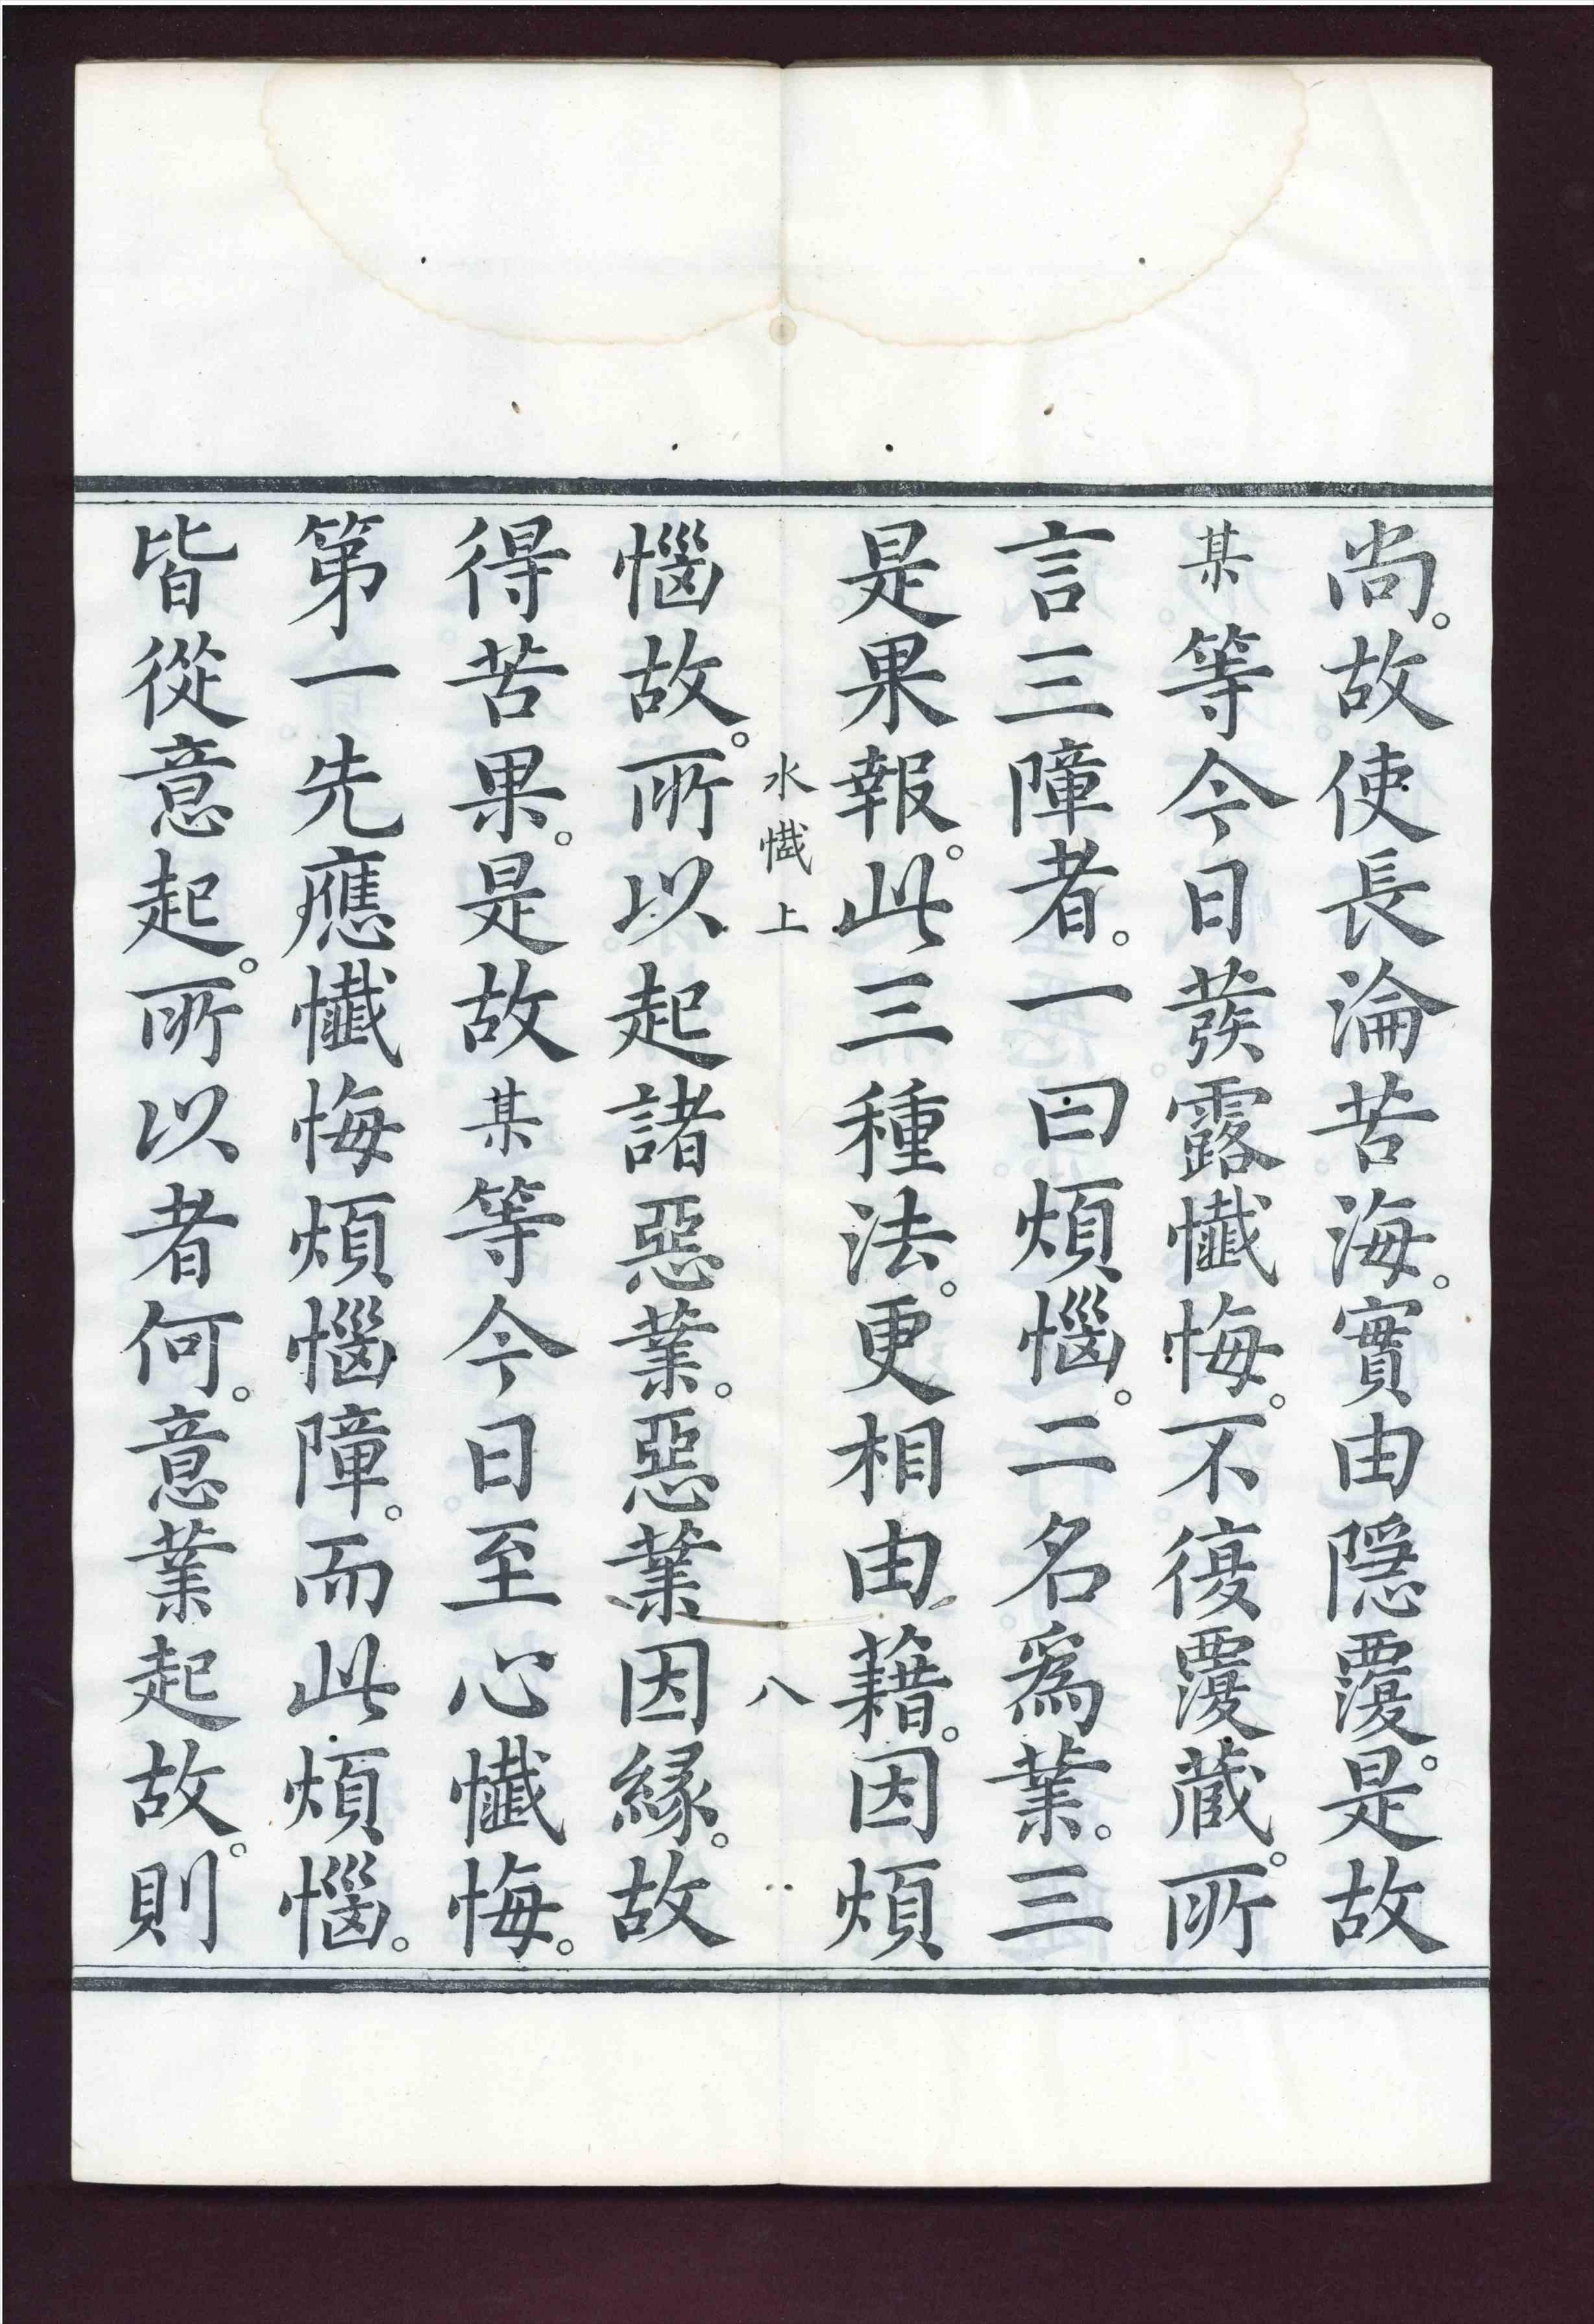 尚。故使長淪苦海。實由隱覆。是故
某等今日發露懺悔。不復覆藏。所
言三障者。一曰煩惱。二名為業。三
是果報。此三種法。更相由藉。因煩
水懺上 八
惱故。所以起諸惡業。惡業因緣。故
得苦果。是故某等今日至心懺悔。
第一先應懺悔煩惱障。而此煩惱。
皆從意起。所以者何。意業起故。則